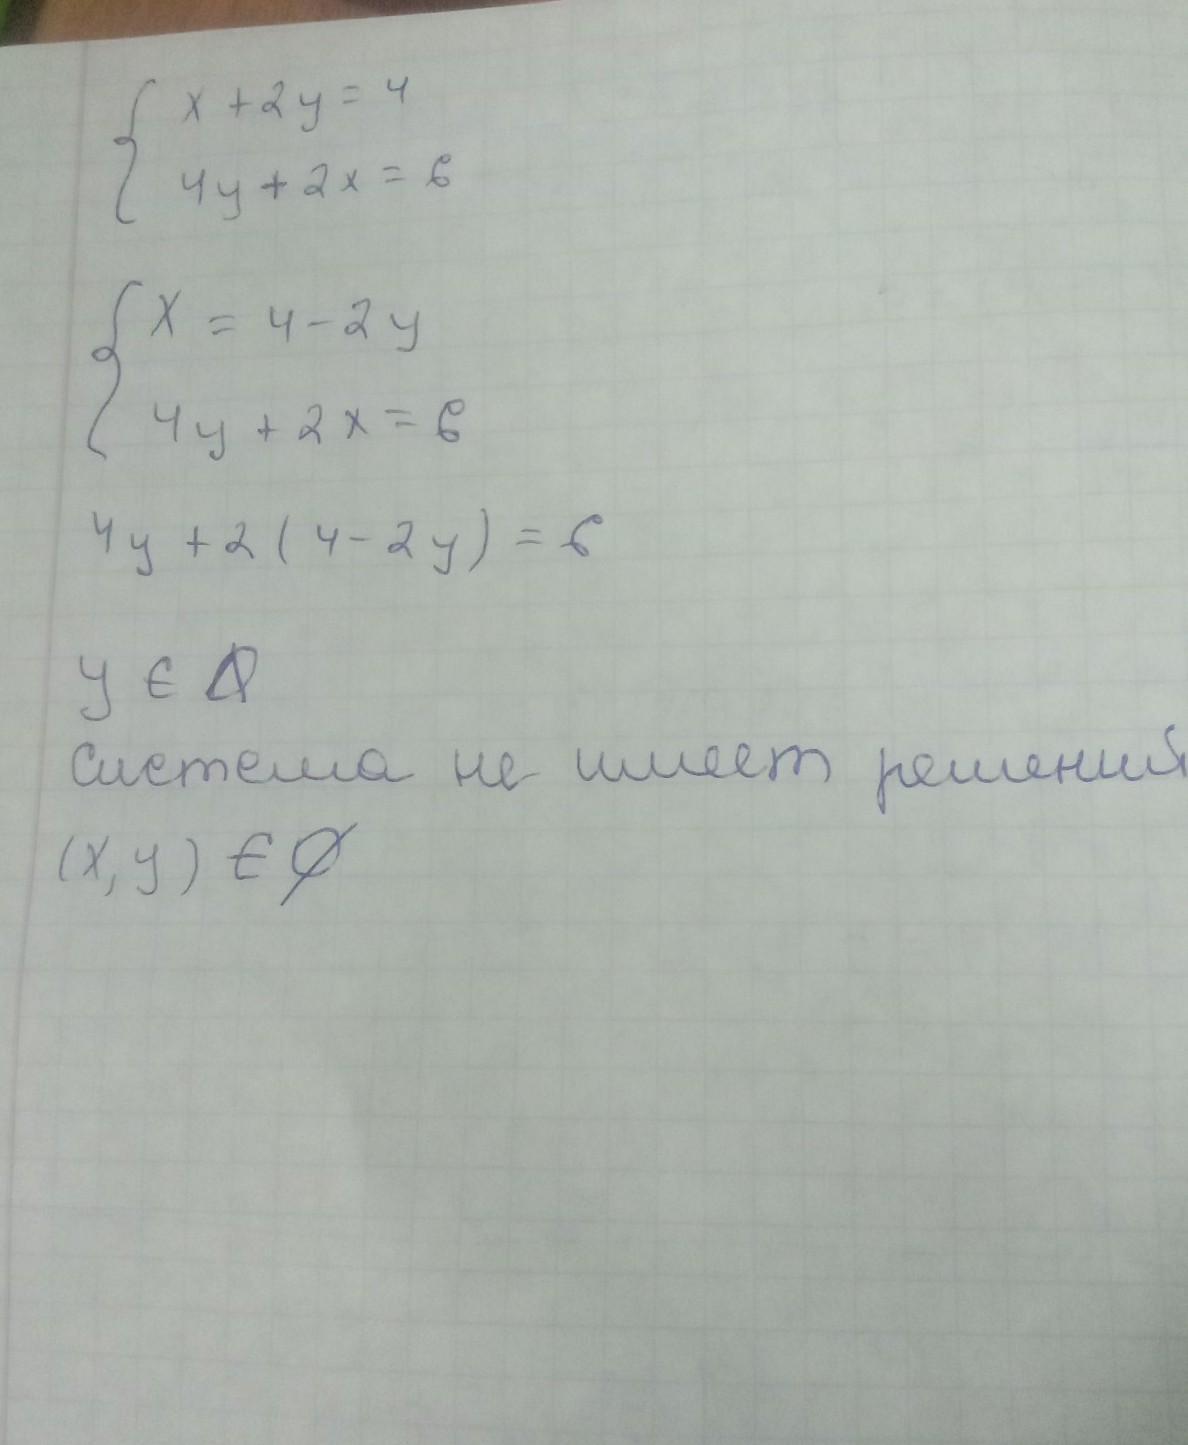 x + 2y = 4
4y + 2x = 6
x = 4 - 2y
4y + 2x = 6
4y + 2(4 - 2y) = 6
y ∈ ∅
Система не имеет решений
(x, y) ∈ ∅